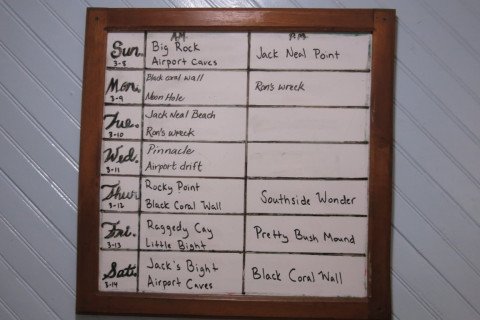 A.M. P.M.
Sun. 3-8 Big Rock
Airport Caves
Jack Neal Point
Mon. 3-9 Black coral wall
Moon Hole
Ron's wreck
Tue. 3-10 Jack Neal Beach
Ron's wreck
Wed. 3-11 Pinnacle
Airport drift
Thur 3-12 Rocky Point
Black Coral Wall
Southside Wonder
Fri. 3-13 Raggedy Cay
Little Bight
Pretty Bush Mound
Sat. 3-14 Jack's Bight
Airport Caves
Black Coral Wall